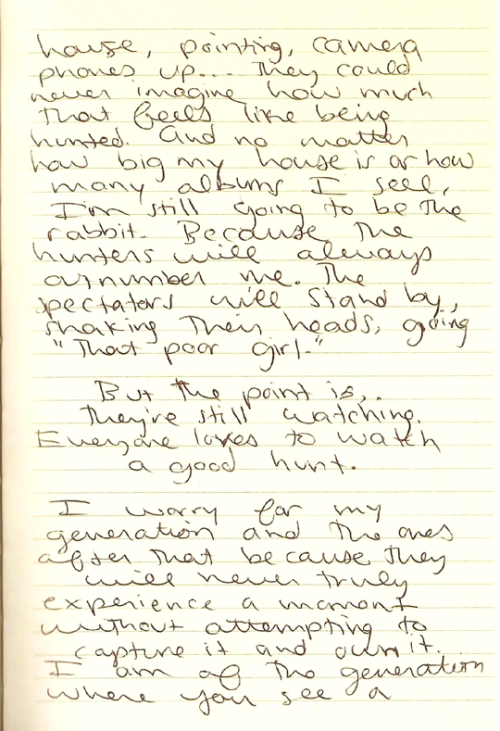 house, pointing, camera
phones up... They could
never imagine how much
that feels like being
hunted. And no matter
how big my house is or how
many albums I sell,
I'm still going to be the
rabbit. Because the
hunters will always
outnumber me. The
spectators will stand by,
shaking their heads, going
"That poor girl."
But the point is,.
They're still watching.
Everyone loves to watch
a good hunt.
I worry for my
generation and the ones
after that because they
will never truly
experience a moment
without attempting to
capture it and own it.
I am of the generation
where you see a